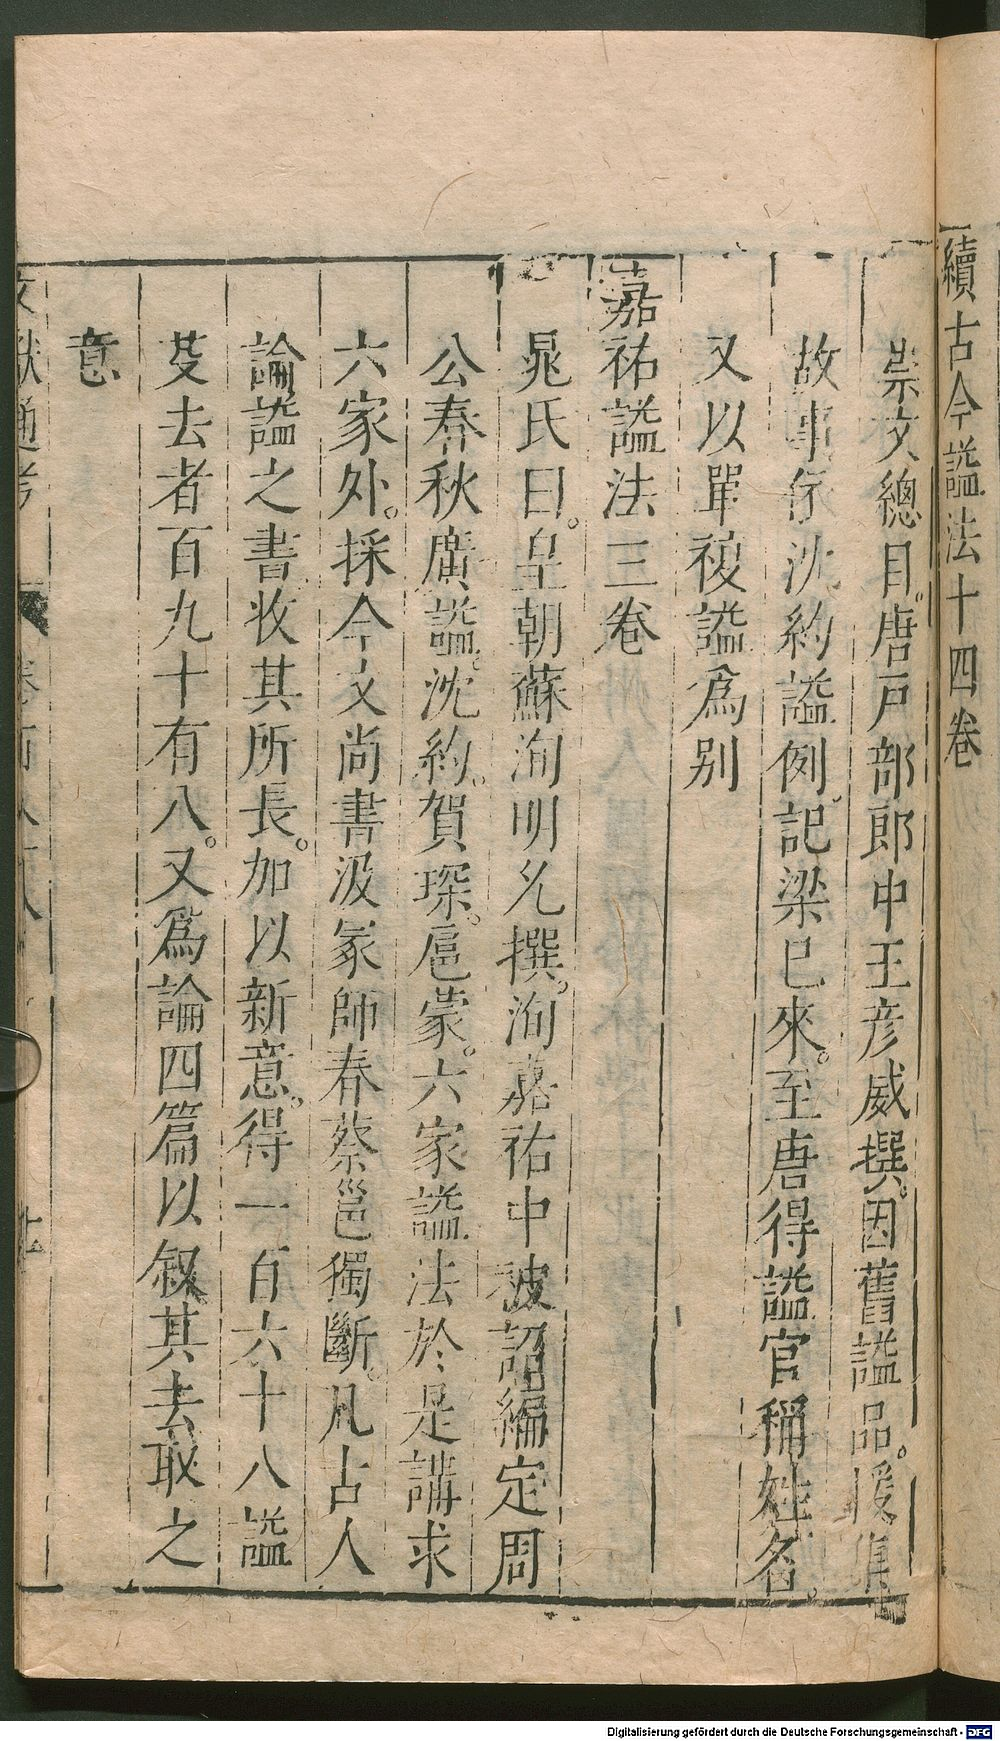 續古今謚法十四卷
崇文總目。唐戶部郎中王彥威撰。因舊謚品。援集
故事。仔沈約謚例。記梁已來。至唐得謚官稱姓名。
又以單複謚爲別
嘉祐謚法三卷
晁氏曰。皇朝蘇洵明允撰。洵嘉祐中被詔編定周
公春秋廣謚。沈約。賀琛。扈蒙。六家謚法於是講求
六家外。採今文尚書汲冢師春蔡邕獨斷。凡古人
論謚之書收其所長。加以新意。得一百六十八謚
芟去者百九十有八。又爲論四篇以叙其去取之
意
文獻通考 卷百八十八
Digitalisierung gefördert durch die Deutsche Forschungsgemeinschaft - DFG